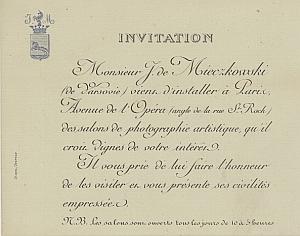 J M
INVITATION
Monsieur J. de Mieczkowski
(de Varsovie) vient d'installer à Paris,
Avenue de l'Opéra (angle de la rue St-Roch)
des salons de photographie artistique, qu'il
croit dignes de votre intérêt.
Il vous prie de lui faire l'honneur
de les visiter et vous présente ses civilités
empressées.
N.B. Les salons sont ouverts tous les jours de 10 à 5 heures